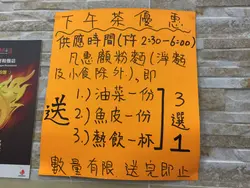 下午茶優惠
供應時間(下午2:30-6:00)
凡惠顧粉麵(淨麵
及小食除外)、即
送
1.)油菜一份
2.)魚皮一份
3.)熱飲一杯
3選1
數量有限 送完即止